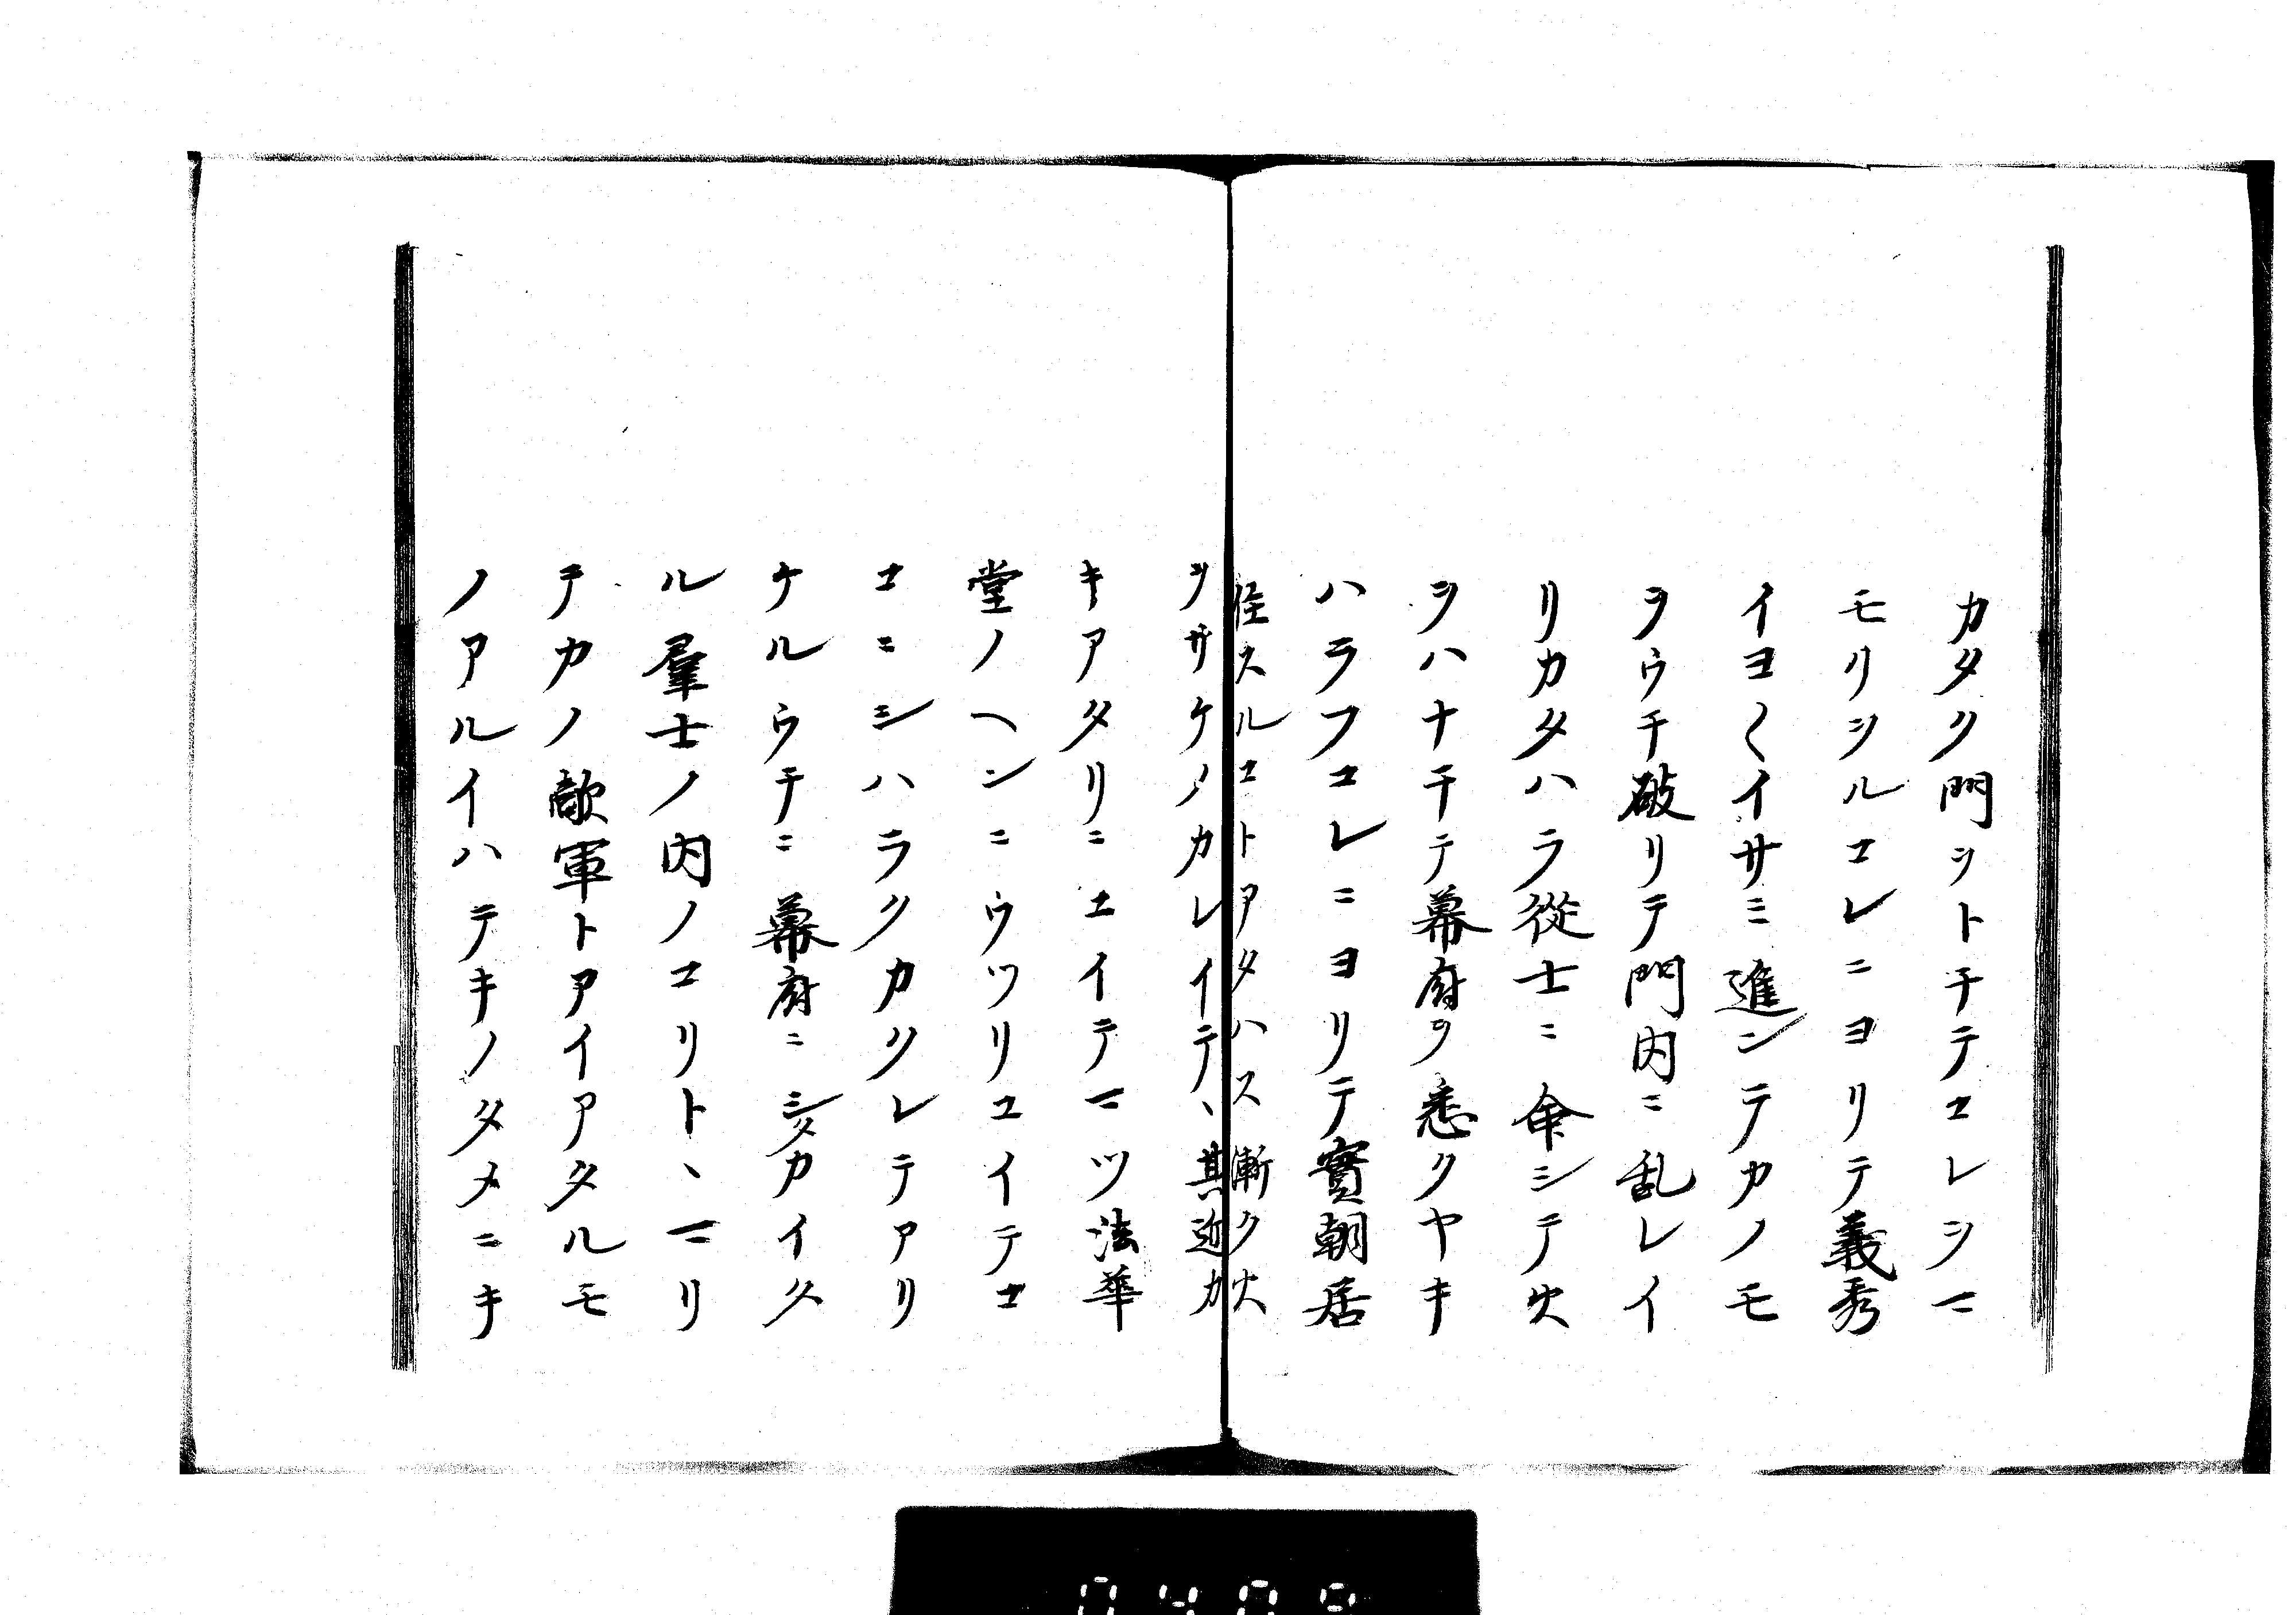 カタク門ヲトチテコレヲマ
モリヲルコレニヨリテ義秀
イヨ〱イサミ進ンテカノモ
ヲウチ破リテ門内ニ乱レイ
リカタハラ從士ニ命シテ火
ヲハナチテ幕府ヲ悉クヤキ
ハラフコレニヨリテ實朝居
住スルコトアタハス漸ク火
ヲサケノカレイテヽ其近カ
キアタリニエイテマツ法華
堂ノヘンニウツリユイテコ
コニシハラクカクレテアリ
ケルウチニ幕府ニシタカイタ
ル羣士ノ内ノコリトヽマリ
テカノ敵軍トアイアタルモ
ノアルイハテキノタメニキ